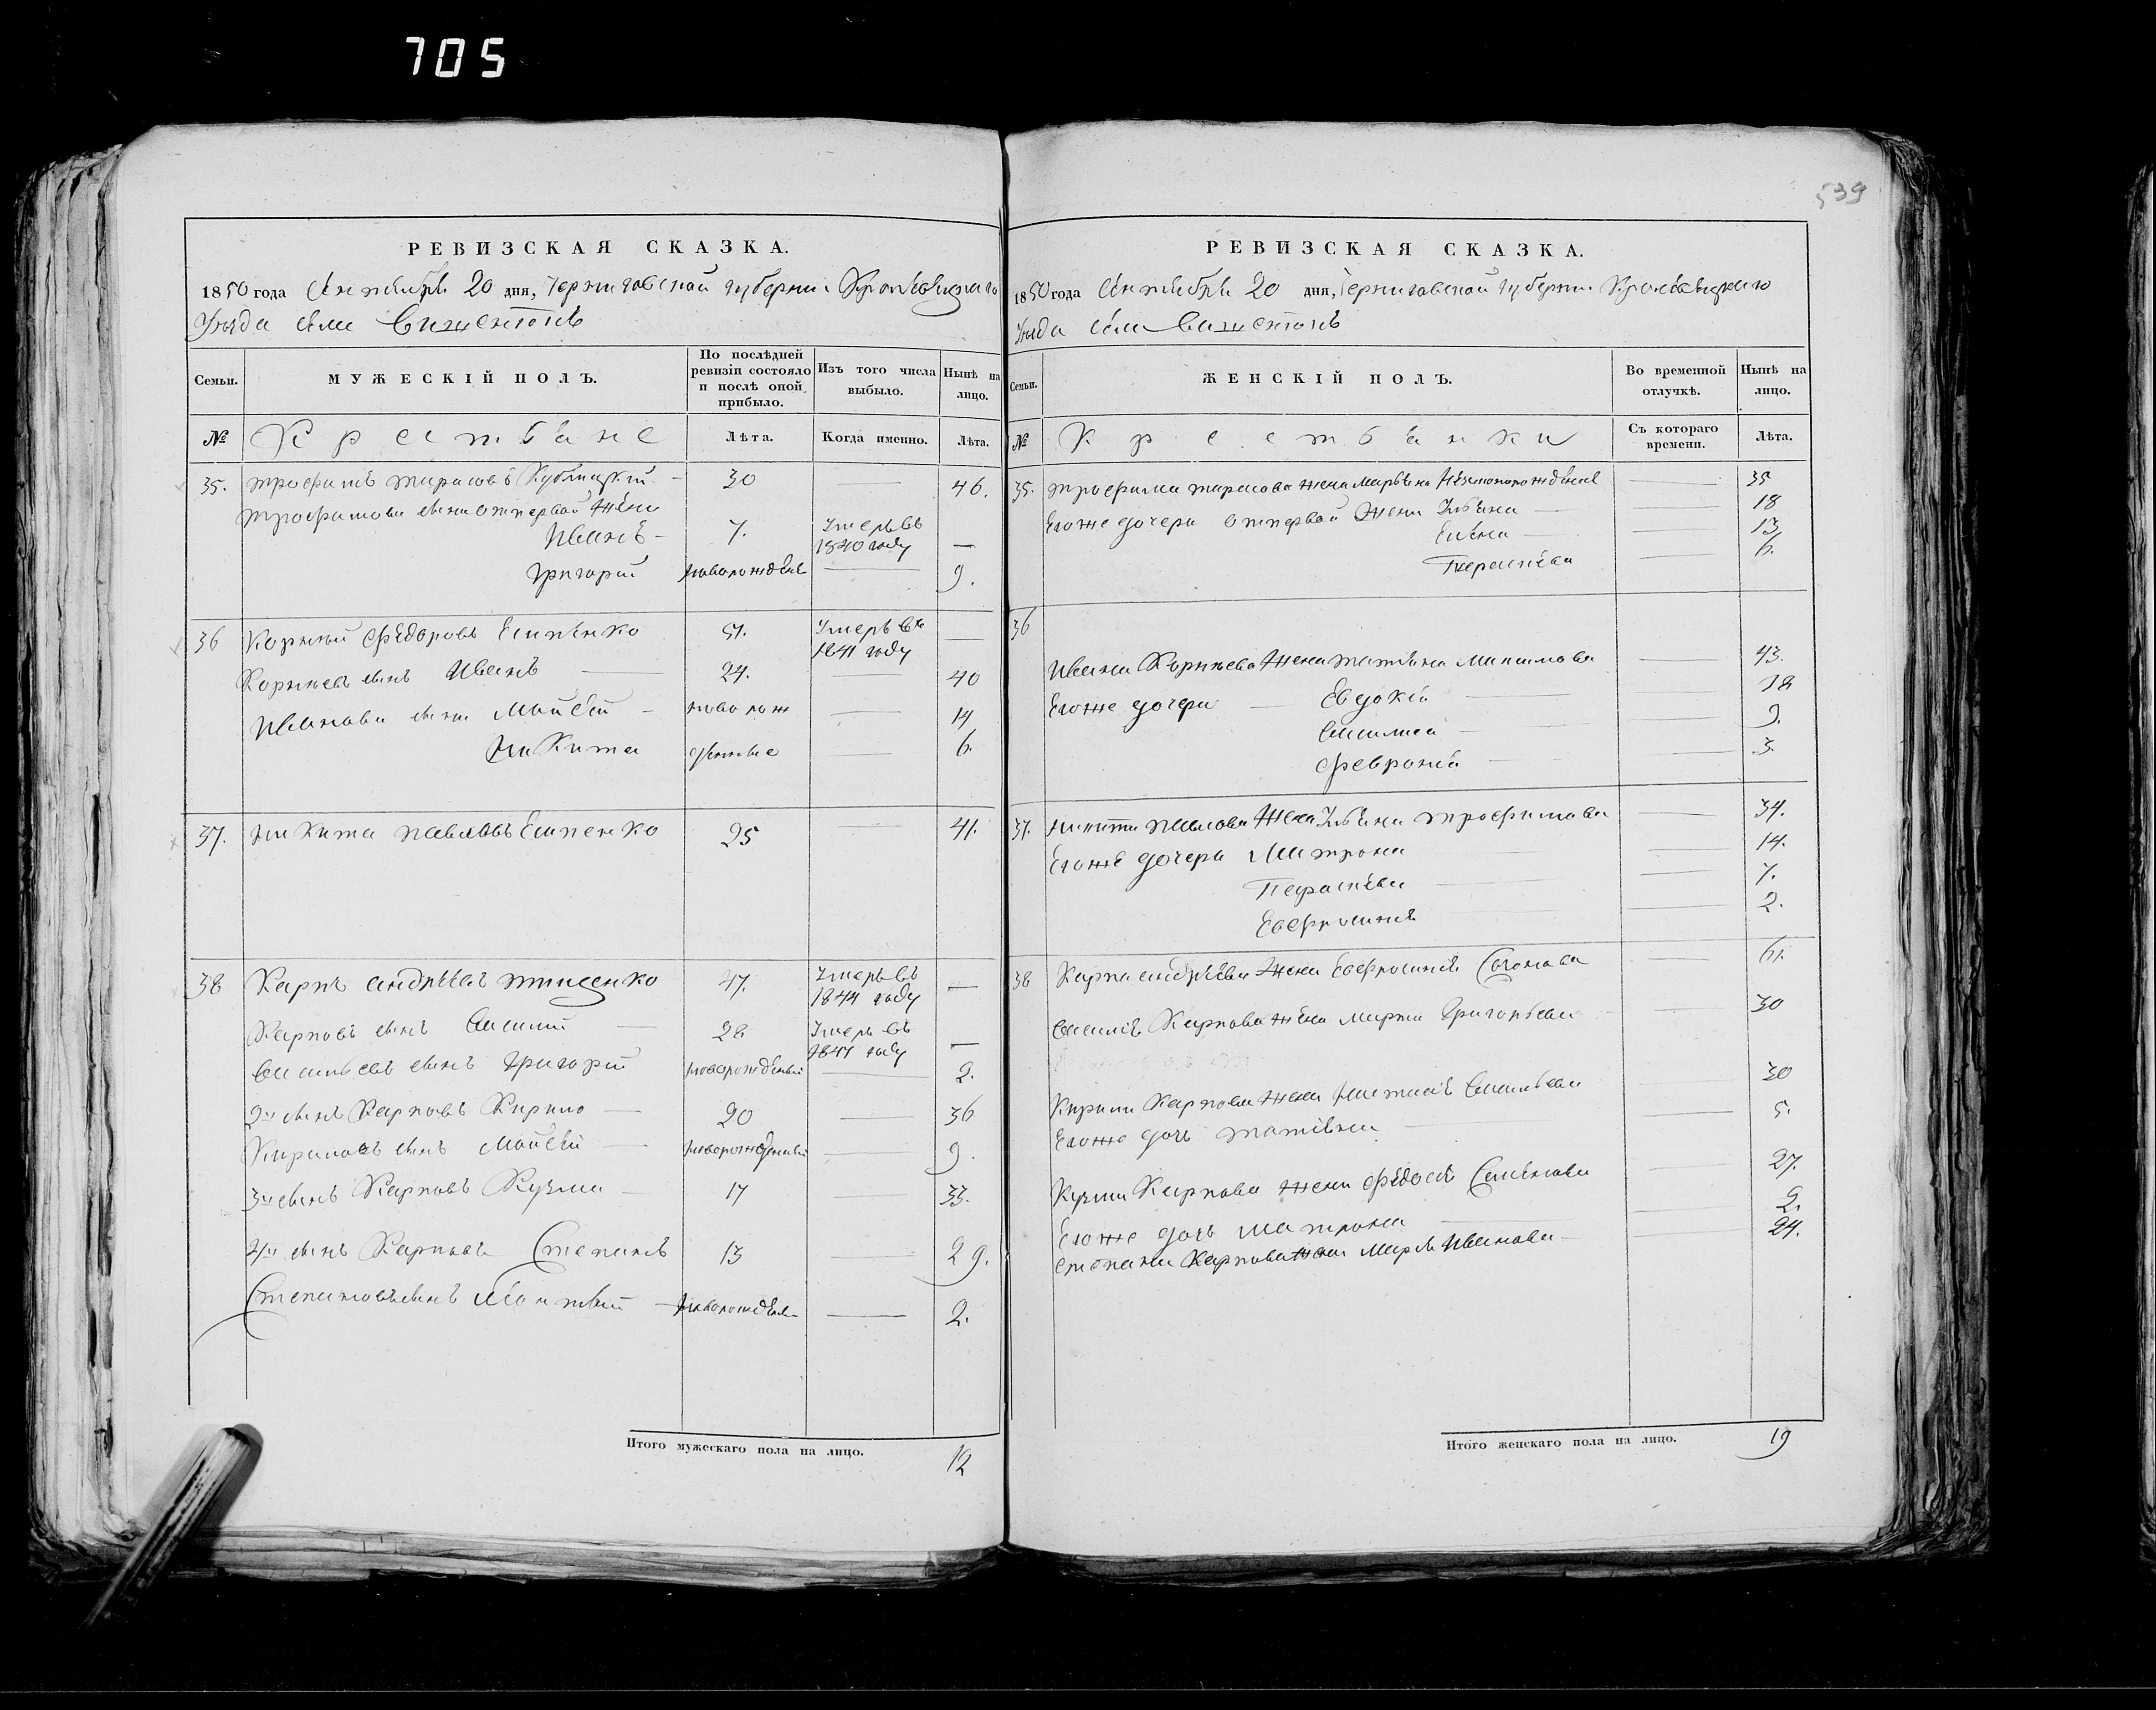 705
539
РЕВИЗСКАЯ СКАЗКА.
1850 года Сентября 20 дня, Черниговской губернии Кролевецкаго
Уезда села
Семьи.
МУЖЕСКІЙ ПОЛЪ.
По послѣдней ревизіи состояло и послѣ оной прибыло.
Изъ того числа выбыло.
Нынѣ на лицо.
№
Крестьяне
Лѣта.
Когда именно.
Лѣта.
35. Трофимъ Тарасовъ Кублицкий 30 — 46.
Трофимови сыни отпервой жени
Иванъ 7. Умеръ въ 1840 году —
Григорий новорожденые — 9.
36 Корний Федоровъ Есипенко 51. Умеръ въ 1841 году —
Корниевъ сынъ Иванъ 24. — 40
Иванови сыни Мойсей новорож — 14
Никита денные — 6.
37. Никита Павловъ Есипенко 25 — 41.
38 Карпъ Андреевъ Тищенко 47. Умеръ въ 1844 году —
Карповъ сынъ Василий 28 Умеръ въ 1847 году —
Васильевъ сынъ Григорий новорожденый — 2.
2й сынъ Карповъ Кирило 20 — 36
Кириловъ сынъ Мойсей новорожденый — 9.
3й сынъ Карповъ Кузма 17 33.
4й сынъ Карповъ Степанъ 13 29.
Степановъ сынъ новорожден — 2.
Итого мужескаго пола на лицо. 12
РЕВИЗСКАЯ СКАЗКА.
1850 года Сентября 20 дня, Черниговской губернии Кролевецкаго
Уезда села
Семьи.
ЖЕНСКІЙ ПОЛЪ.
Во временной отлучкѣ.
Нынѣ на лицо.
№
Крестьянки
Съ котораго времени.
Лѣта.
35. Трофима Тарасова жена Марьяна — 35
Егоже дочери отпервой жени Ульяна — 18
Елена — 13
Параскева — 6.
36
Ивана Корниева жена Татьяна Максимова — 43.
Егоже дочери Евдокия — 18
Василиса — 9.
Феврония — 3.
37. Никити Павлова жена Ульяна Трофимова — 34.
Егоже дочери Матрона — 14.
Параскева — 7.
Евфросиния — 2.
38 Карпа Андреева жена Евфросиния — 61.
Василия Карпова жена Марфа Григорьева — 30
Кирила Карпова жена Настасия Васильева — 30
Егоже дочь Татияна — 5.
Кузми Карпова жена Федосия Семенова — 27.
Егоже дочь Матрона — 2.
Степана Карпова жена Мария Иванова — 24.
Итого женскаго пола на лицо. 19